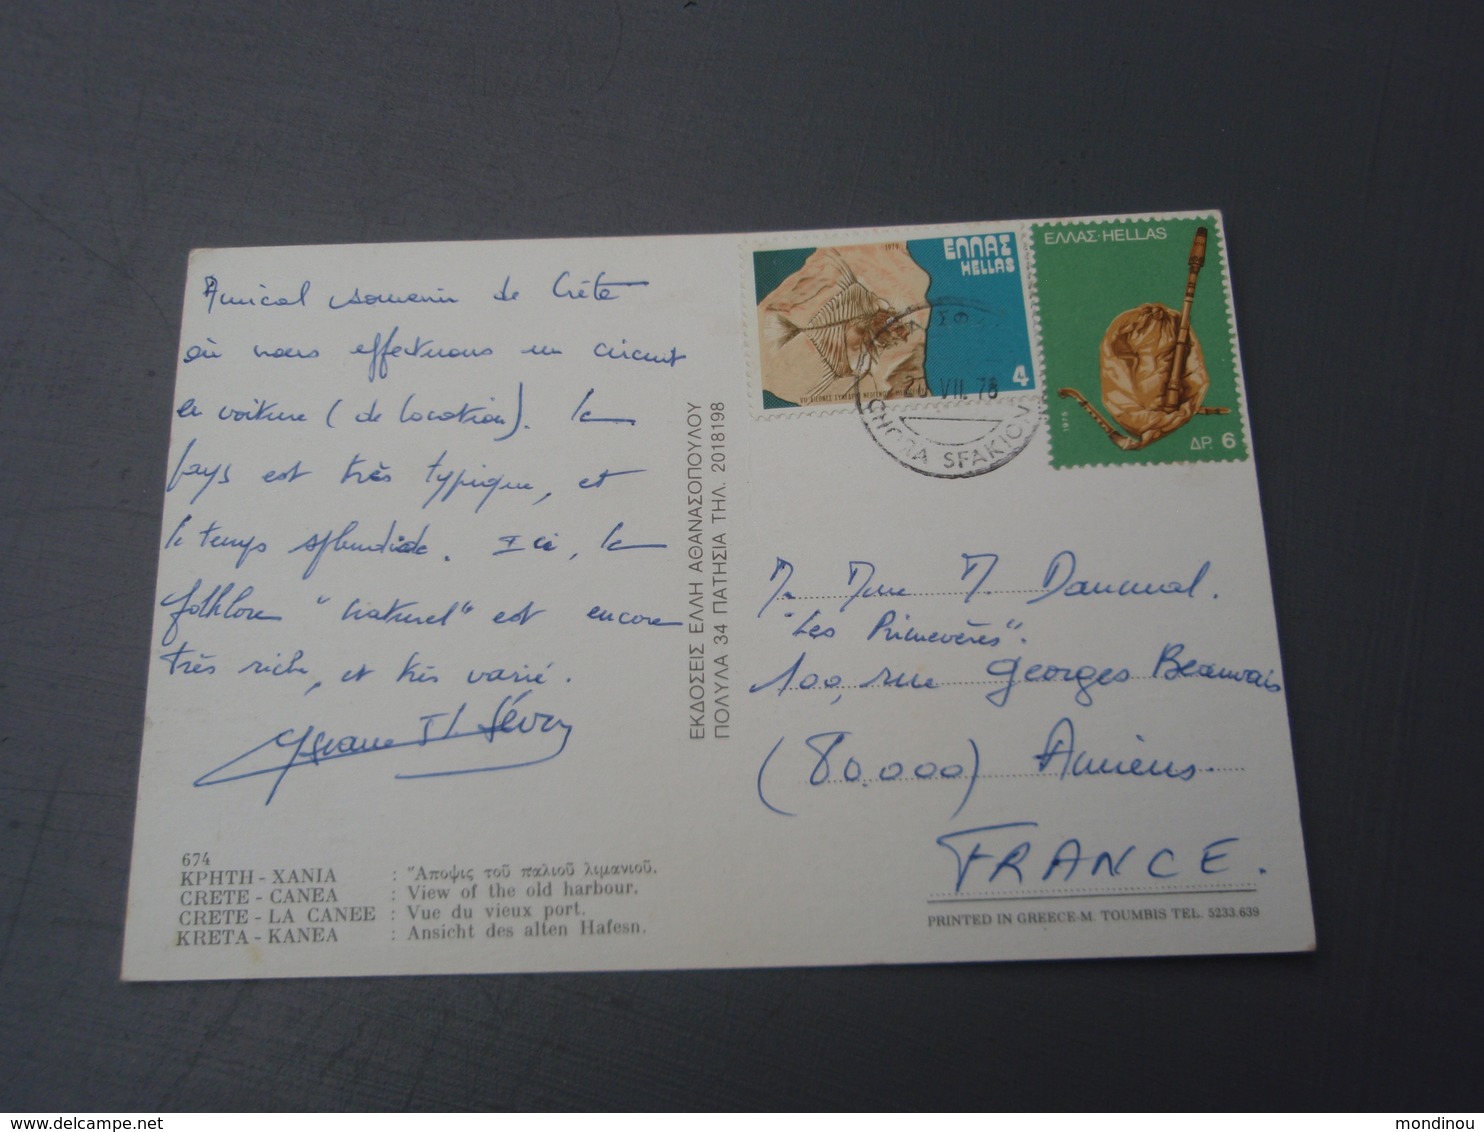 Amical souvenir de Crète
où nous effectuons un circuit
en voiture (de location). Le
pays est très typique, et
le temps splendide. Ici, le
folklore "naturel" est encore
très riche, et très varié.
674
ΚΡΗΤΗ - ΧΑΝΙΑ : Ἄποψις τοῦ παλιοῦ λιμανιοῦ.
CRETE - CANEA : View of the old harbour.
CRETE - LA CANEE : Vue du vieux port.
KRETA - KANEA : Ansicht des alten Hafesn.
ΕΚΔΟΣΕΙΣ ΕΛΛΗ ΑΘΑΝΑΣΟΠΟΥΛΟΥ
ΠΟΛΥΛΑ 34 ΠΑΤΗΣΙΑ ΤΗΛ. 2018198
ΕΛΛΑΣ
HELLAS
4
20 VII. 78
CHORA SFAKION
ΕΛΛΑΣ·HELLAS
1975
ΔΡ. 6
M. Mme M.
"Les Primevères".
100, rue Georges Beauvais
(80.000) Amiens.
FRANCE.
PRINTED IN GREECE-M. TOUMBIS TEL. 5233.639
delcampe.net
mondinou